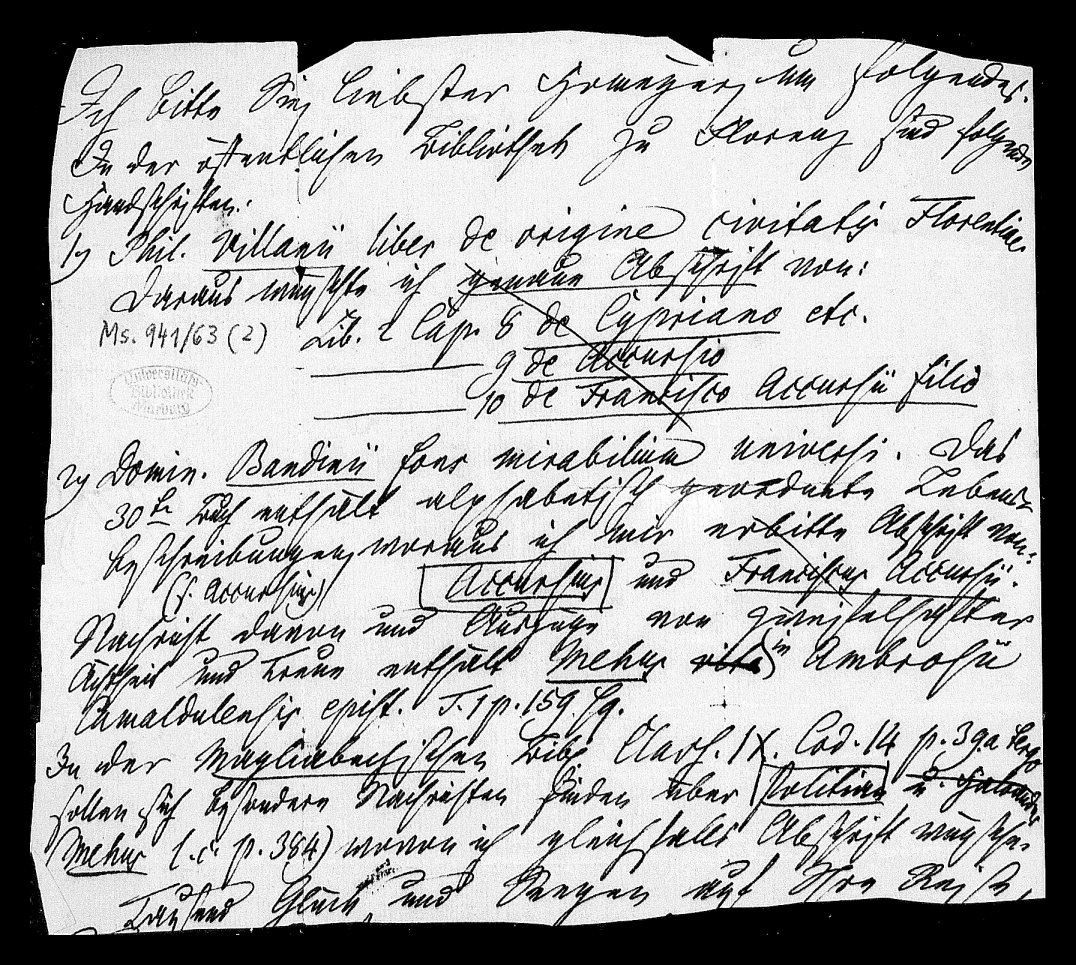 Ich bitte Sie, liebster Homeyer, um Folgendes.
In der öffentlichen Bibliothek zu Florenz sind folgende
Handschriften:
1) Phil. Villanii liber de origine civitatis Florentiae
Daraus wünschte ich genaue Abschrift von:
Ms. 941/63 (2) Lib. 2 Cap. 8 de Cypriano etc.
9 de Accursio
Universitäts Bibliothek Marburg
10 de Francisco Accursii filio
2) Domin. Bandinii fons mirabilium universi. Das
30te Buch enthält alphabetisch geordnete Lebens
beschreibungen, woraus ich mir erbitte Abschrift von:
(s. Accursius) Accursius und Franciscus Accursii.
Nachricht davon und Auszüge von zweifelhafter
Ächtheit und Treue enthält Mehus vita in Ambrosii
Camaldulensis epist. T. 1 p. 159 sq.
In der Magliabechischen Bibl. Class. IX. Cod. 14 p. 39a
sollen sich besondere Nachrichten finden über Politian u.
Mehus l. c. p. 384) wovon ich gleichfalls Abschrift wünsche.
Tausend Glück und Seegen auf Ihre Reise,